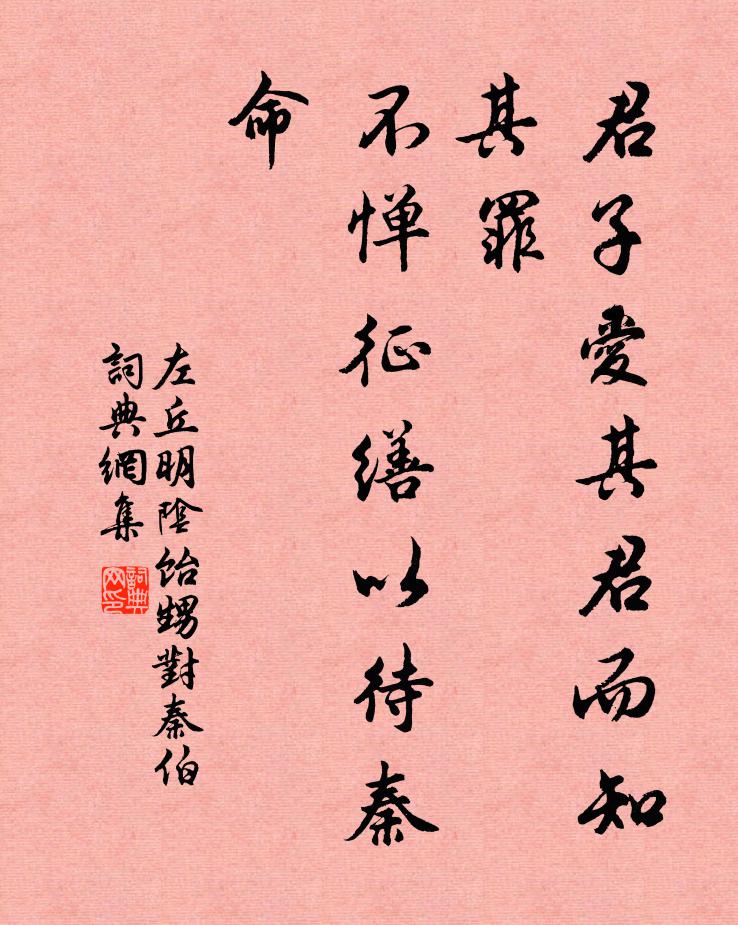 君子愛其君而知
其罪
不惮征缮以待秦
命
左丘明陰飴甥對秦伯
詞典網集
詞典网印